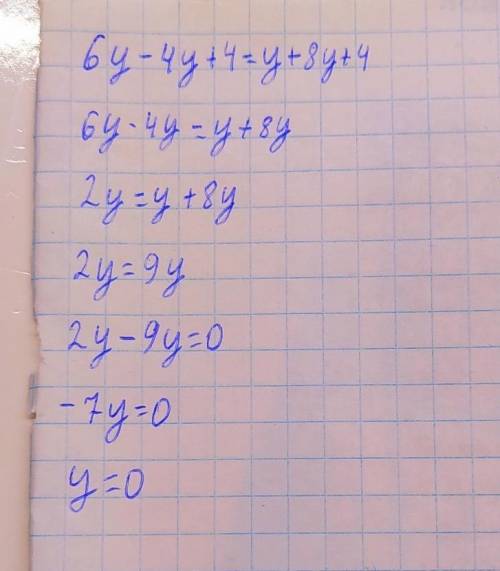 6y - 4y + 4 = y + 8y + 4
6y - 4y = y + 8y
2y = y + 8y
2y = 9y
2y - 9y = 0
-7y = 0
y = 0